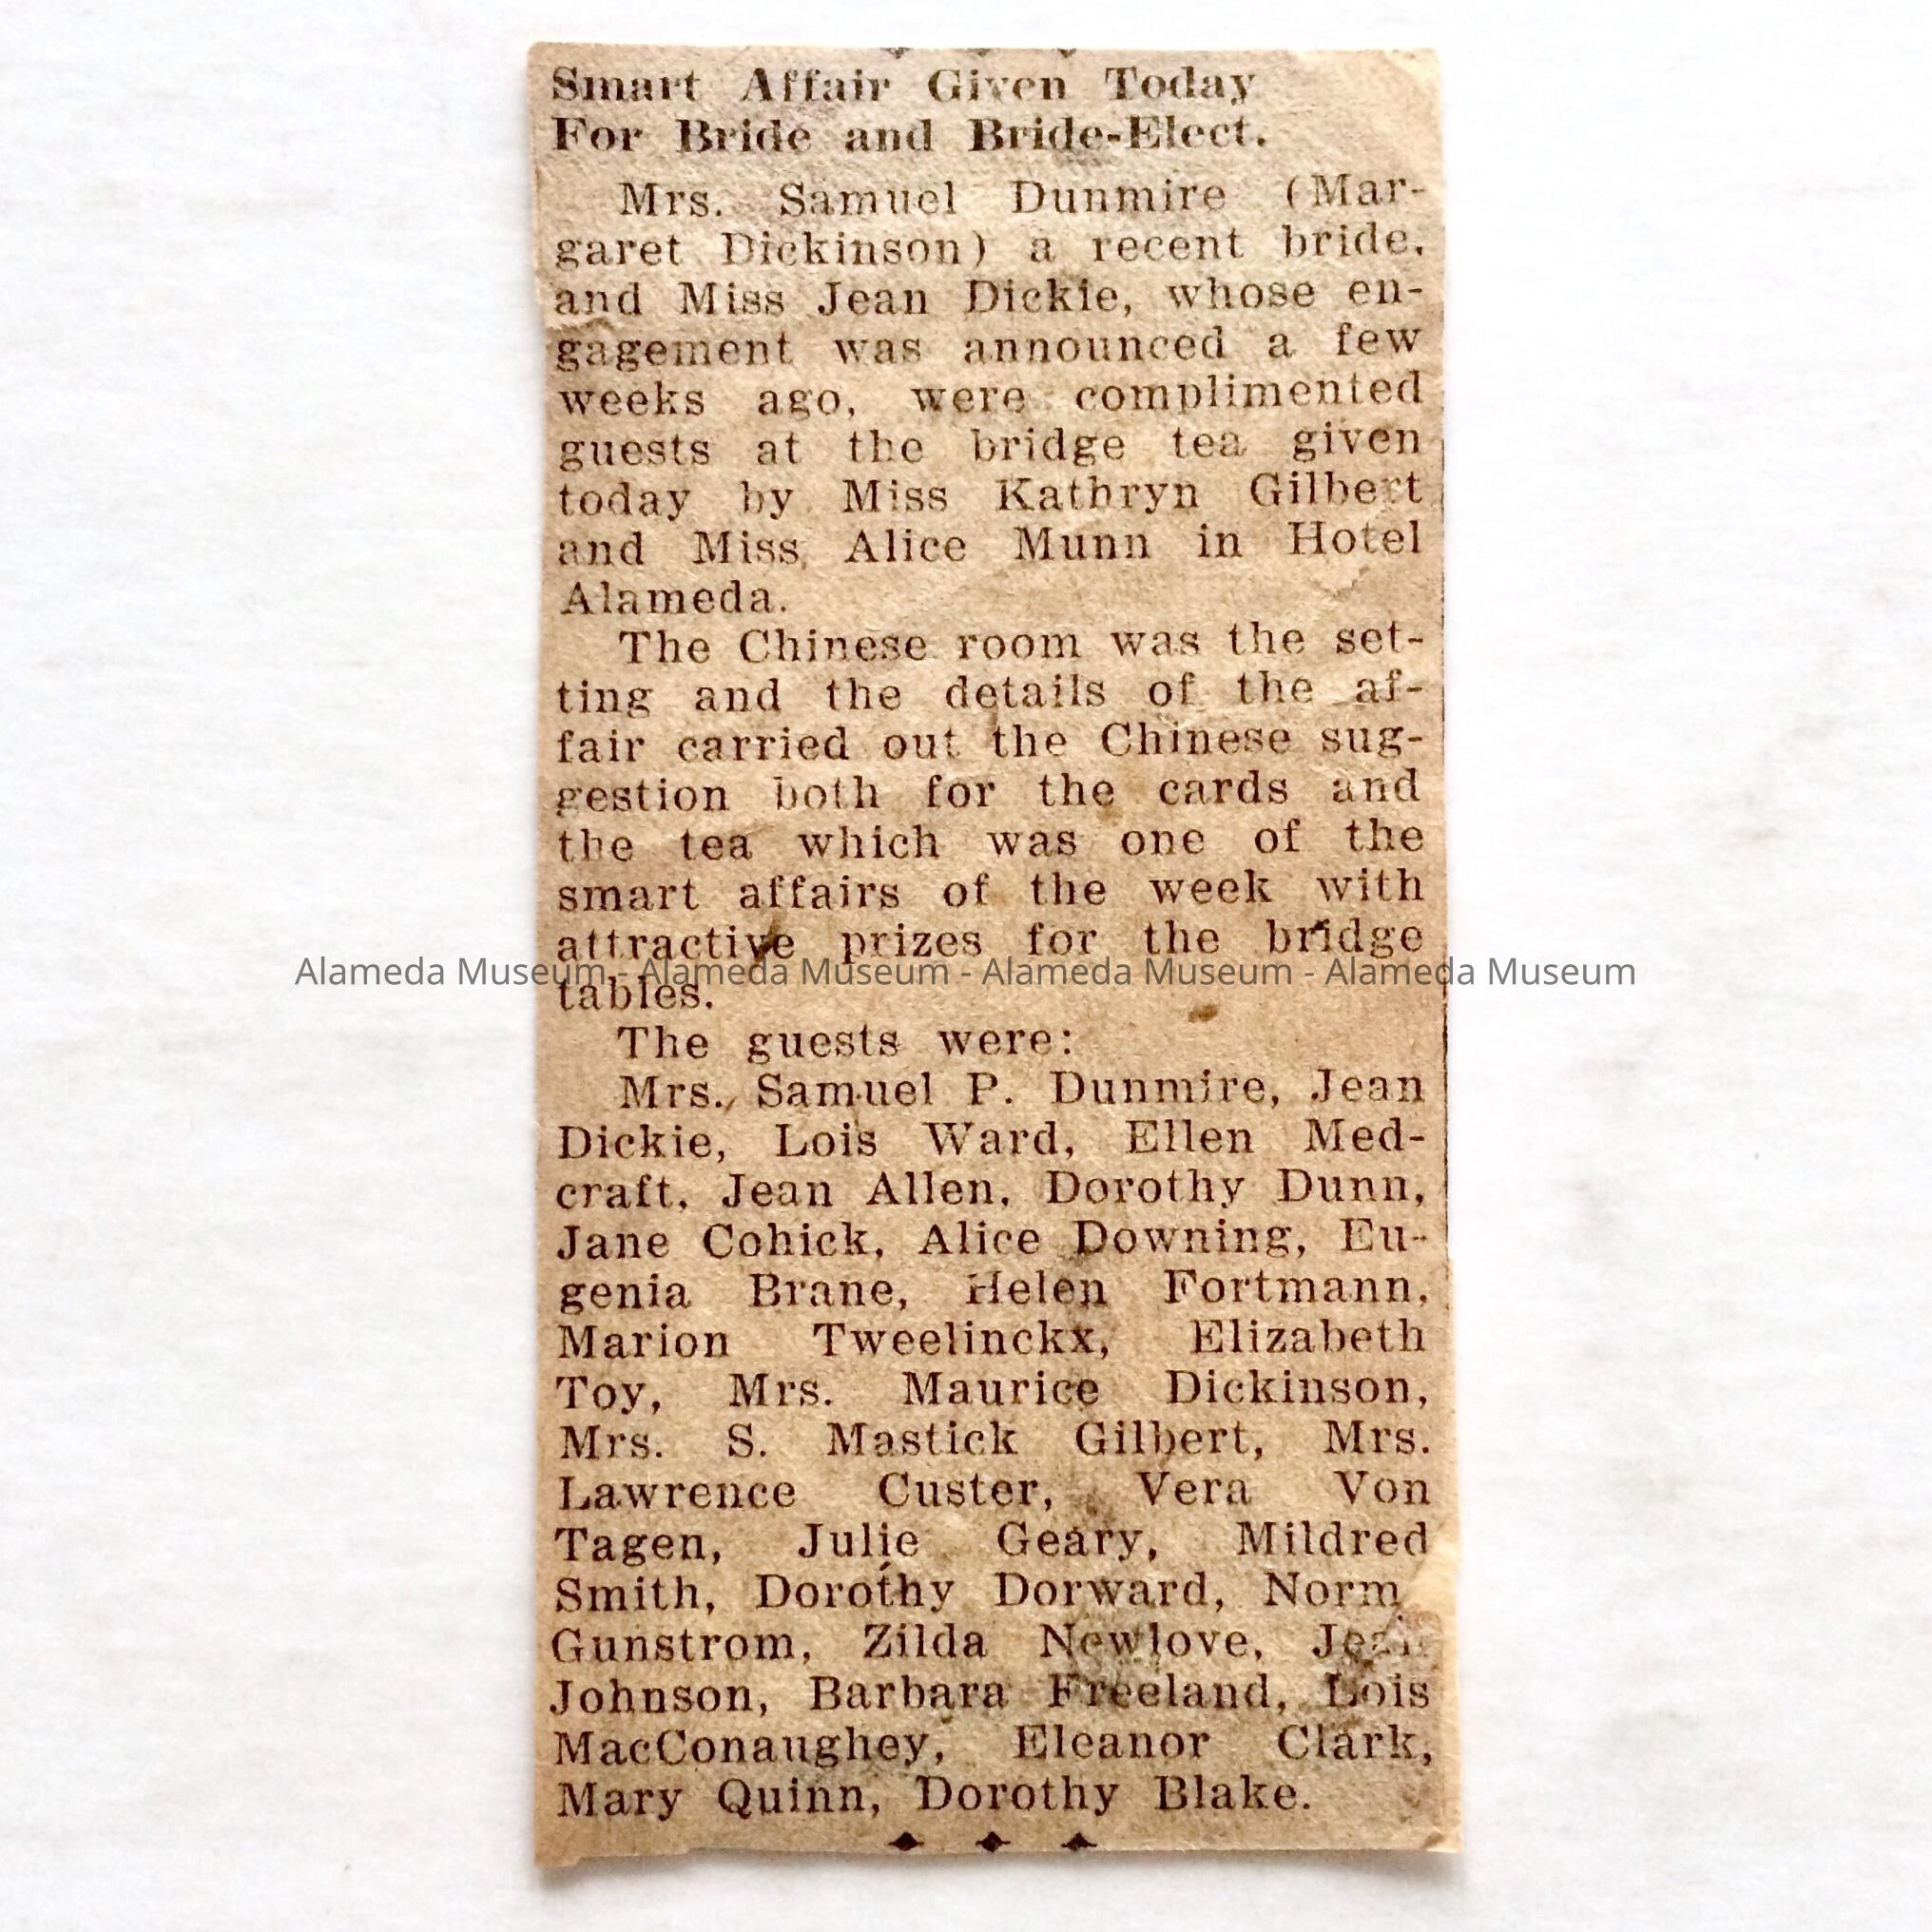 Smart Affair Given Today
For Bride and Bride-Elect.
Mrs. Samuel Dunmire (Mar-
garet Dickinson) a recent bride,
and Miss Jean Dickie, whose en-
gagement was announced a few
weeks ago, were complimented
guests at the bridge tea given
today by Miss Kathryn Gilbert
and Miss Alice Munn in Hotel
Alameda.
The Chinese room was the set-
ting and the details of the af-
fair carried out the Chinese sug-
gestion both for the cards and
the tea which was one of the
smart affairs of the week with
attractive prizes for the bridge
Alameda Museum - Alameda Museum - Alameda Museum - Alameda Museum
tables.
The guests were:
Mrs. Samuel P. Dunmire, Jean
Dickie, Lois Ward, Ellen Med-
craft, Jean Allen, Dorothy Dunn,
Jane Cohick, Alice Downing, Eu-
genia Brane, Helen Fortmann,
Marion Tweelinckx, Elizabeth
Toy, Mrs. Maurice Dickinson,
Mrs. S. Mastick Gilbert, Mrs.
Lawrence Custer, Vera Von
Tagen, Julie Geary, Mildred
Smith, Dorothy Dorward, Norm
Gunstrom, Zilda Newlove, Jean
Johnson, Barbara Freeland, Lois
MacConaughey, Eleanor Clark,
Mary Quinn, Dorothy Blake.